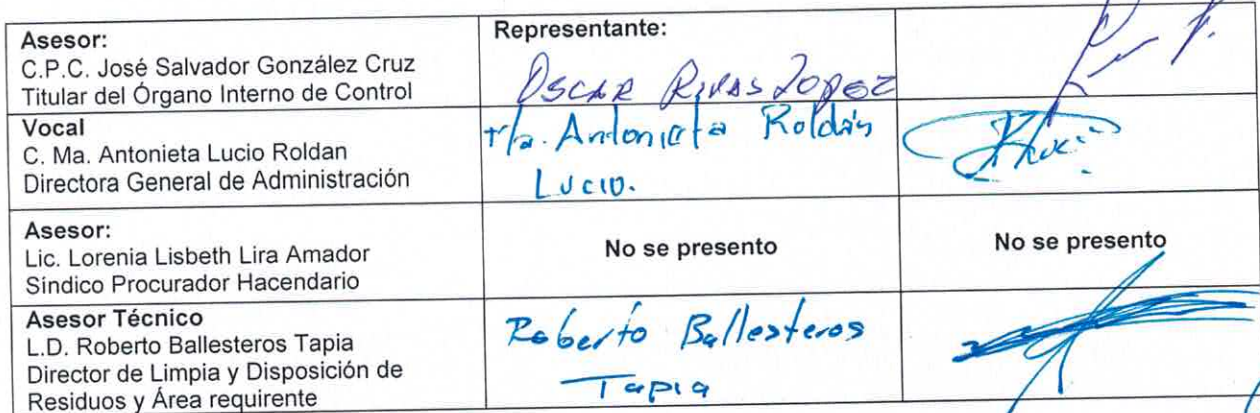 Asesor:
C.P.C. José Salvador González Cruz
Titular del Órgano Interno de Control
Representante:
Oscar Rivas Lopez
Vocal
C. Ma. Antonieta Lucio Roldan
Directora General de Administración
Ma. Antonieta Roldán
Lucio.
Asesor:
Lic. Lorenia Lisbeth Lira Amador
Sindico Procurador Hacendario
No se presento
No se presento
Asesor Técnico
L.D. Roberto Ballesteros Tapia
Director de Limpia y Disposición de
Residuos y Área requirente
Roberto Ballesteros
Tapia